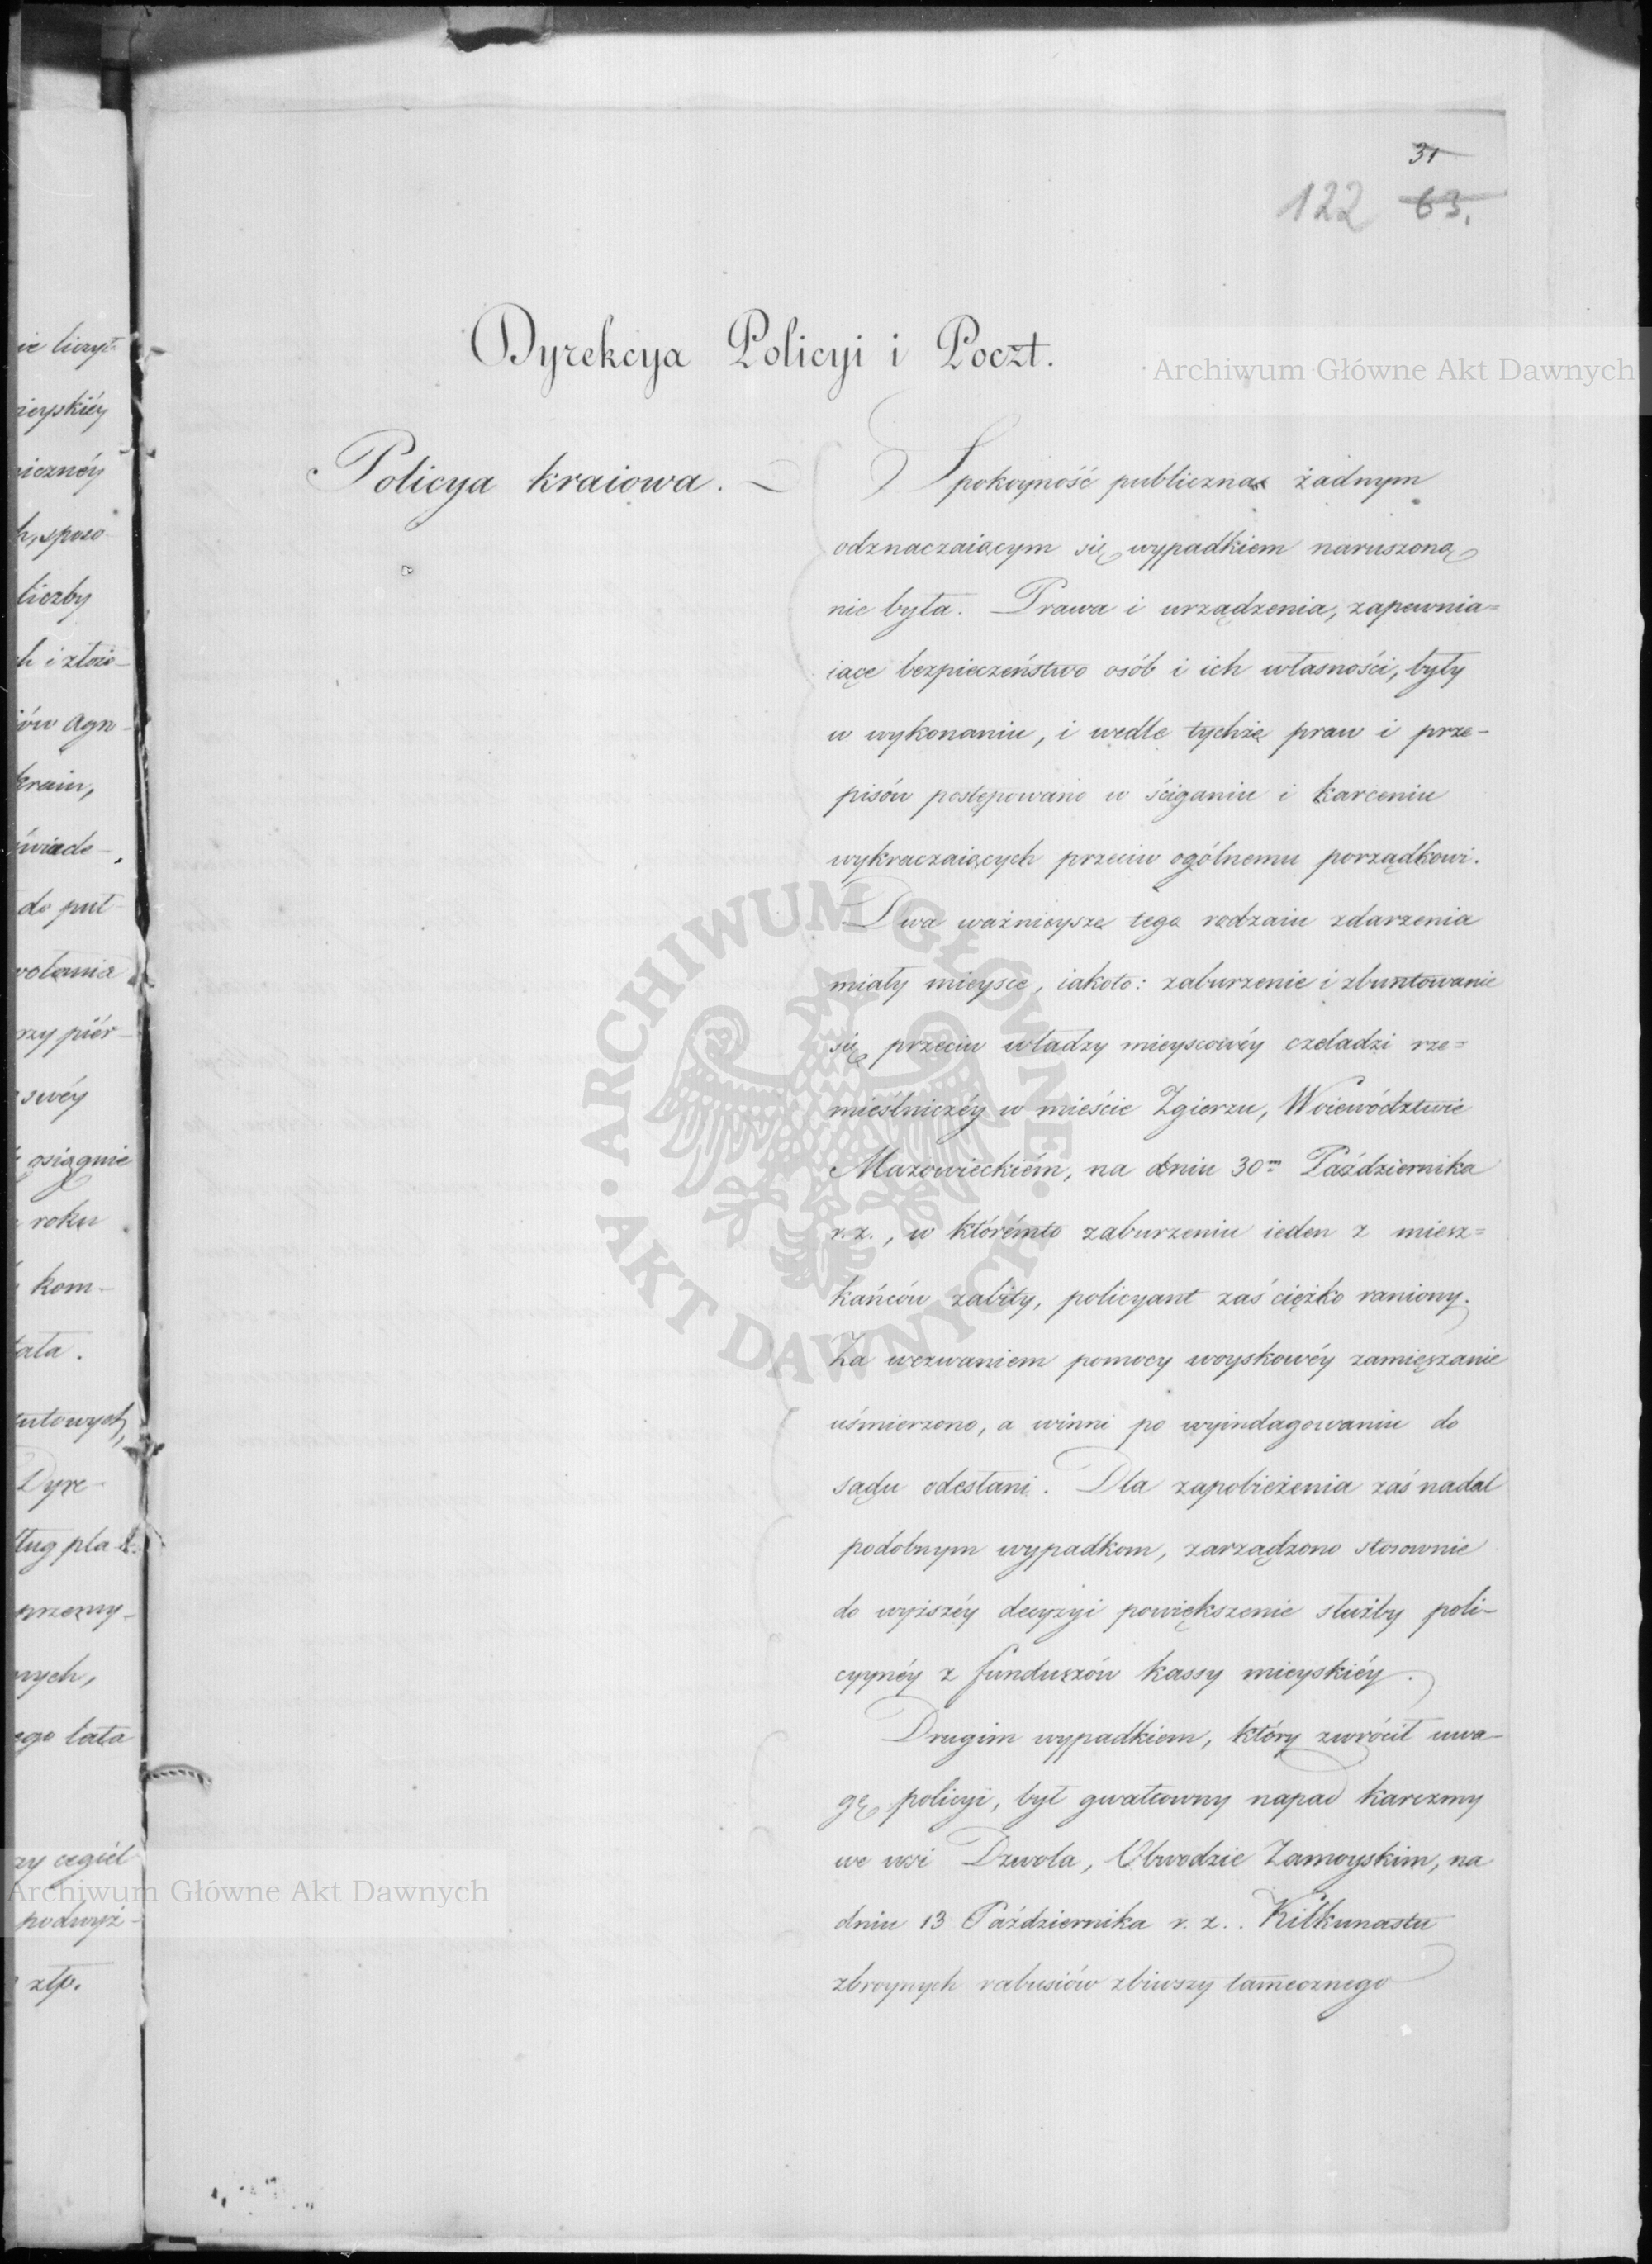 31
122 63.
Dyrekcya Policyi i Poczt.
Archiwum Główne Akt Dawnych
Policya kraiowa. —
Spokoyność publiczna żadnym
odznaczaiącym się wypadkiem naruszoną
nie była. Prawa i urządzenia, zapewnia=
iące bezpieczeństwo osób i ich własności, były
w wykonaniu, i wedle tychże praw i prze-
pisów postępowano w ściganiu i karceniu
wykraczaiących przeciw ogólnemu porządkowi.
Dwa ważnieysze tego rodzaiu zdarzenia
miały mieysce, iakoto: zaburzenie i zbuntowanie
się przeciw władzy mieyscowéy czeladzi rze=
mieślniczéy w mieście Zgierzu, Woiewództwie
Mazowieckiém, na dniu 30m Października
r. z., w którémto zaburzeniu ieden z miesz=
kańców zabity, policyant zaś ciężko raniony.
Za wezwaniem pomocy woyskowéy zamięszanie
uśmierzono, a winni po wyindagowaniu do
sądu odesłani. Dla zapobieżenia zaś nadal
podobnym wypadkom, zarządzono stosownie
do wyższéy decyzyi powiększenie służby poli-
cyynéy z funduszów kassy mieyskiéy.
Drugim wypadkiem, który zwrócił uwa-
gę policyi, był gwałtowny napad karczmy
we wsi Dzwola, Obwodzie Zamoyskim, na
dniu 13 Października r. z.. Kilkunastu
zbroynych rabusiów zbiwszy tamecznego
ARCHIWUM GŁÓWNE
AKT DAWNYCH
ie liczył
ieyskiéy
icznéy
h, sposo
liczby
h i złożo-
ów agro-
krain,
świade-
do put
wołania
rzy piér-
swéy
osiągnie
roku
kom-
ała.
utowych,
Dyre-
ług pla
przemy-
nych,
ego lata
zy cegieł
Archiwum Główne Akt Dawnych
podwyż-
złp.